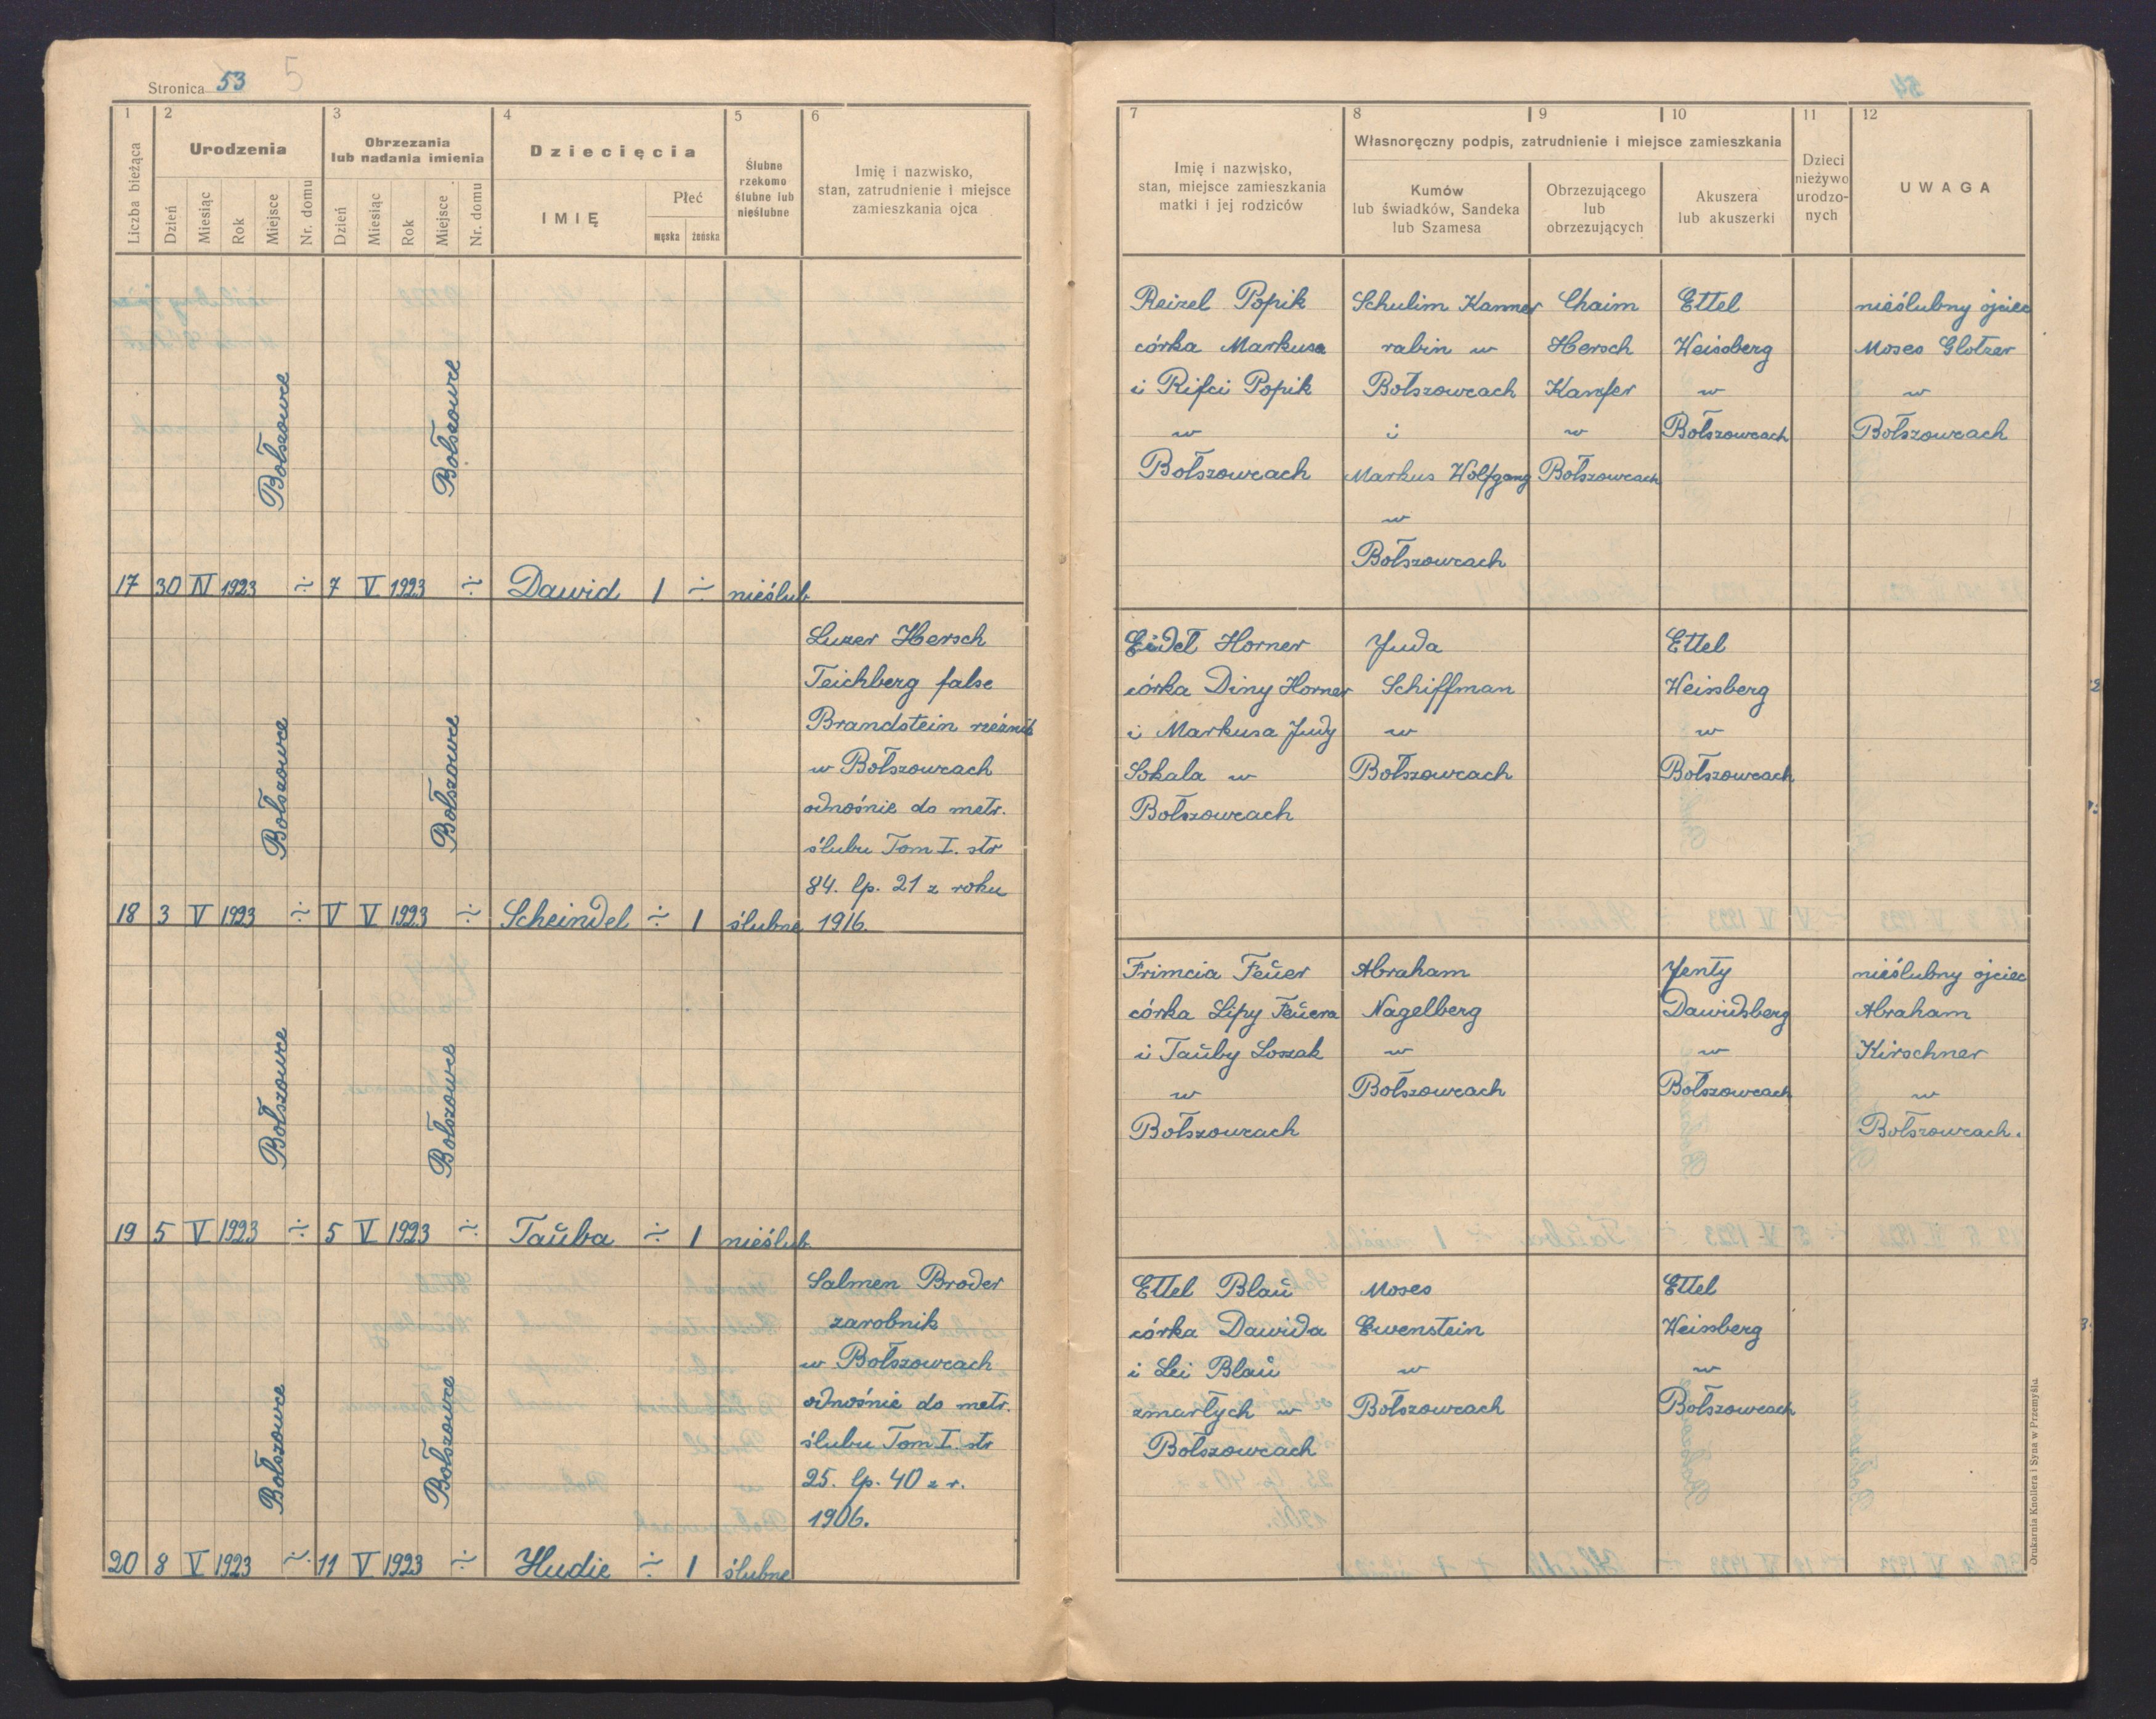 Stronica 53 5
1 2 3 4 5 6
Liczba bieżąca
Urodzenia
Obrzezania
lub nadania imienia
Dziecięcia
Ślubne
rzekomo
ślubne lub
nieślubne
Imię i nazwisko,
stan, zatrudnienie i miejsce
zamieszkania ojca
Dzień Miesiąc Rok Miejsce Nr. domu
Dzień Miesiąc Rok Miejsce Nr. domu
IMIĘ
Płeć
męska żeńska
Bołszowce Bołszowce
17 30 IV 1923 ÷ 7 V 1923 ÷ Dawid 1 ÷ nieślub
Luzer Hersch
Teichberg false
Brandstein rzeźnik
w Bołszowcach
odnośnie do metr.
ślubu Tom I. str
84. lp. 21 z roku
1916.
Bołszowce Bołszowce
18 3 V 1923 ÷ V V 1923 ÷ Scheindel ÷ 1 ślubne
Bołszowce Bołszowce
19 5 V 1923 ÷ 5 V 1923 ÷ Taŭba ÷ 1 nieślub
Salmen Broder
zarobnik
w Bołszowcach
odnośnie do metr.
ślubu Tom I. str
25. lp. 40 z r.
1906.
Bołszowce Bołszowce
20 8 V 1923 ÷ 11 V 1923 ÷ Hudie ÷ 1 ślubne
54
7 8 9 10 11 12
Imię i nazwisko,
stan, miejsce zamieszkania
matki i jej rodziców
Własnoręczny podpis, zatrudnienie i miejsce zamieszkania
Kumów
lub świadków, Sandeka
lub Szamesa
Obrzezującego
lub
obrzezujących
Akuszera
lub akuszerki
Dzieci
nieżywo
urodzo-
nych
UWAGA
Reizel Popik
córka Markusa
i Rifci Popik
w
Bołszowcach
Schulim Kanner
rabin w
Bołszowcach
i
Markus Wolfgang
w
Bołszowcach
Chaim
Hersch
Kanfer
w
Bołszowcach
Ettel
Weissberg
w
Bołszowcach
nieślubny ojciec
Moses Glotzer
w
Bołszowcach
Eidel Horner
córka Diny Horner
i Markusa Judy
Sokala w
Bołszowcach
Juda
Schiffman
w
Bołszowcach
Ettel
Weissberg
w
Bołszowcach
Frimcia Feŭer
córka Lipy Feŭera
i Taŭby Loszak
w
Bołszowcach
Abraham
Nagelberg
w
Bołszowcach
Jenty
Dawidsberg
w
Bołszowcach
nieślubny ojciec
Abraham
Kirschner
w
Bołszowcach.
Ettel Blaŭ
córka Dawida
i Lei Blaŭ
zmarłych w
Bołszowcach
Moses
Ewenstein
w
Bołszowcach
Ettel
Weissberg
w
Bołszowcach
Drukarnia Knollera i Syna w Przemyślu